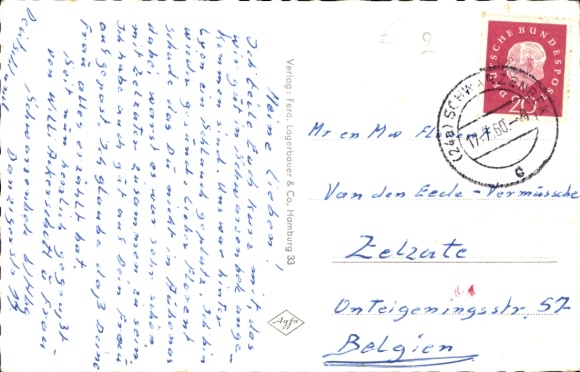 Meine Lieben!
Ich teile Euch kurz mit, das
wir gut in Schwarzenbek ange-
kommen sind. Uns war hinter
Lyon ein Schlauch geplatzt. Ich bin
wieder gesund. Lieber Florent
Schade das Du nicht in Aukenos
dabei warst es war sehr schön
mit Zelzater zusammen zu sein
Ich habe auch gut auf Deine Frau
aufgepast. Ich glaube daß Deine
Frau alles erzählt hat
Seit nun herzlich gegrüßt
von Willi Akerstedt u Frau
Schwarzenbek b/Hbg
Deutschland
Verlag: Ferd. Lagerbauer & Co, Hamburg 33
agfa
2
DEUTSCHE BUNDESPOST
20
(24a) SCHWARZENBEK
17.7.60.
c
Mr en Mw
Van den Eede - Vermüssche
Zelzate
Onteigeningsstr. 57
Belgien